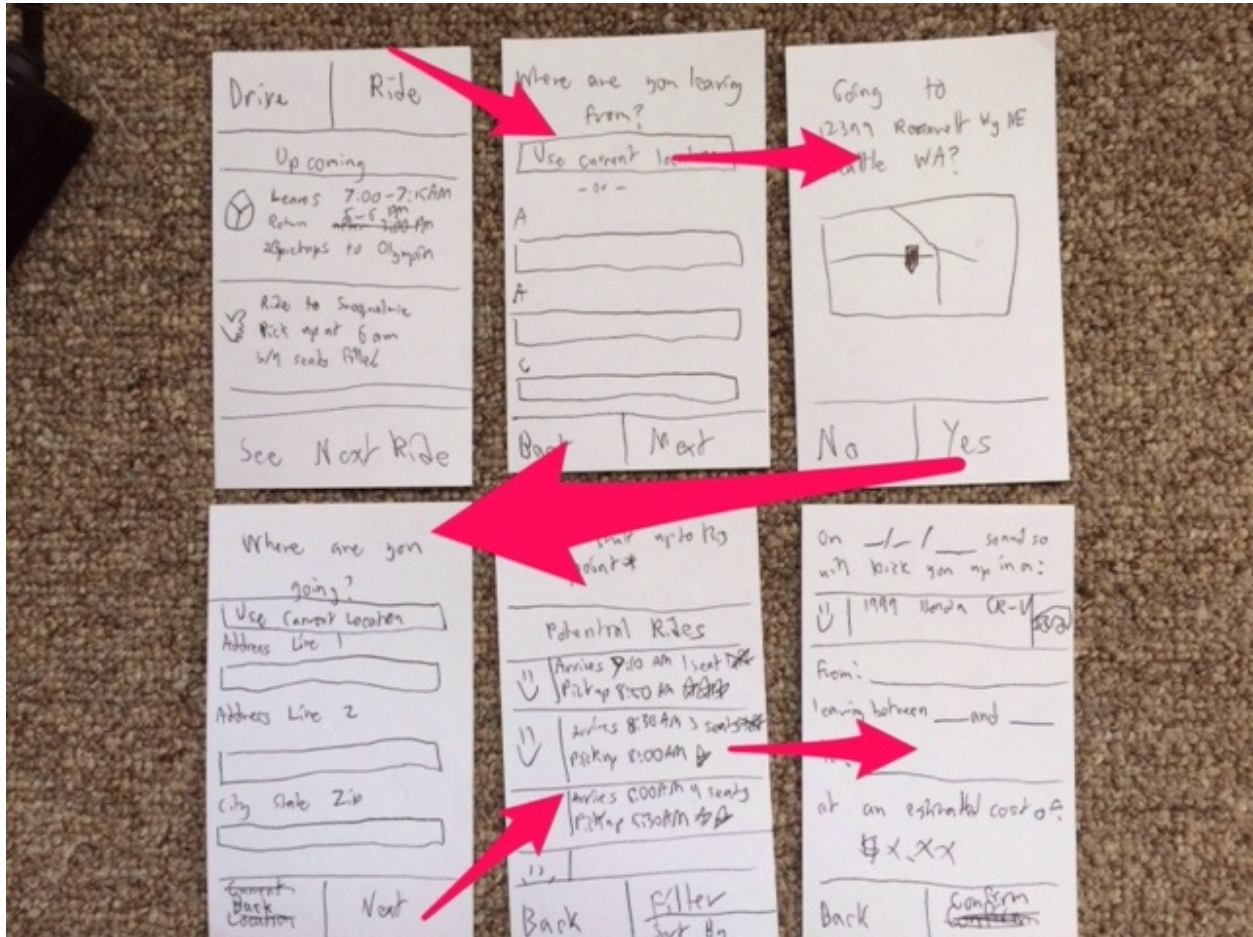 Drive Ride
Upcoming
Leaves 7:00-7:15AM
Return 5-6 PM
after 7:00 PM
to Olympia
Ride to Snoqualmie
Pick up at 6 am
seats filled
See Next Ride
Where are you leaving
from?
Use current
- or -
A
A
C
Back Next
Going to
Roosevelt Wy NE
WA?
No Yes
Where are you
going?
Use Current Location
Address Line 1
Address Line 2
City State Zip
Current
Back
Location
Next
up to
point*
Potential Rides
Arrives 9:10 AM 1 seat
Pickup 8:50 AM
Arrives 8:30 AM 3 seats
Pickup 8:00AM
Arrives 6:00AM 4 seats
Pickup 5:30AM
Back
Filter
Sort By
on _/_/__ so and so
will pick you up in a:
1999 Honda CR-V
From:
leaving between __ and __
at an estimated cost of:
$X.XX
Back
Confirm